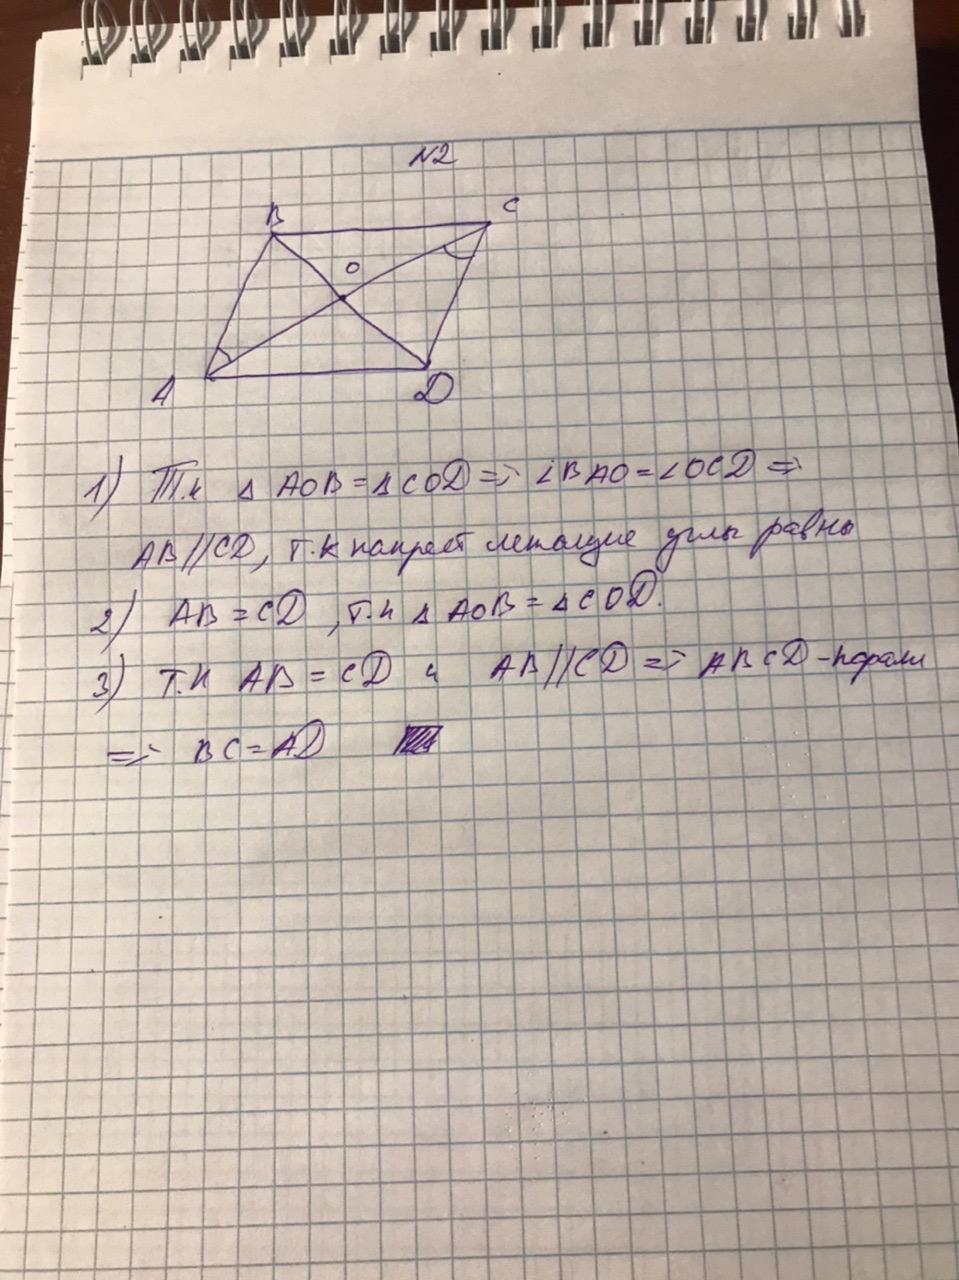 N2
B
C
O
A
D
1) Т.к ∆ AOB = ∆ COD => ∠BAO = ∠OCD =>
AB//CD, т.к накрест лежащие углы равны
2) AB = CD , т.к ∆ AOB = ∆ COD.
3) т.к AB = CD и AB//CD => ABCD - парал
=> BC = AD